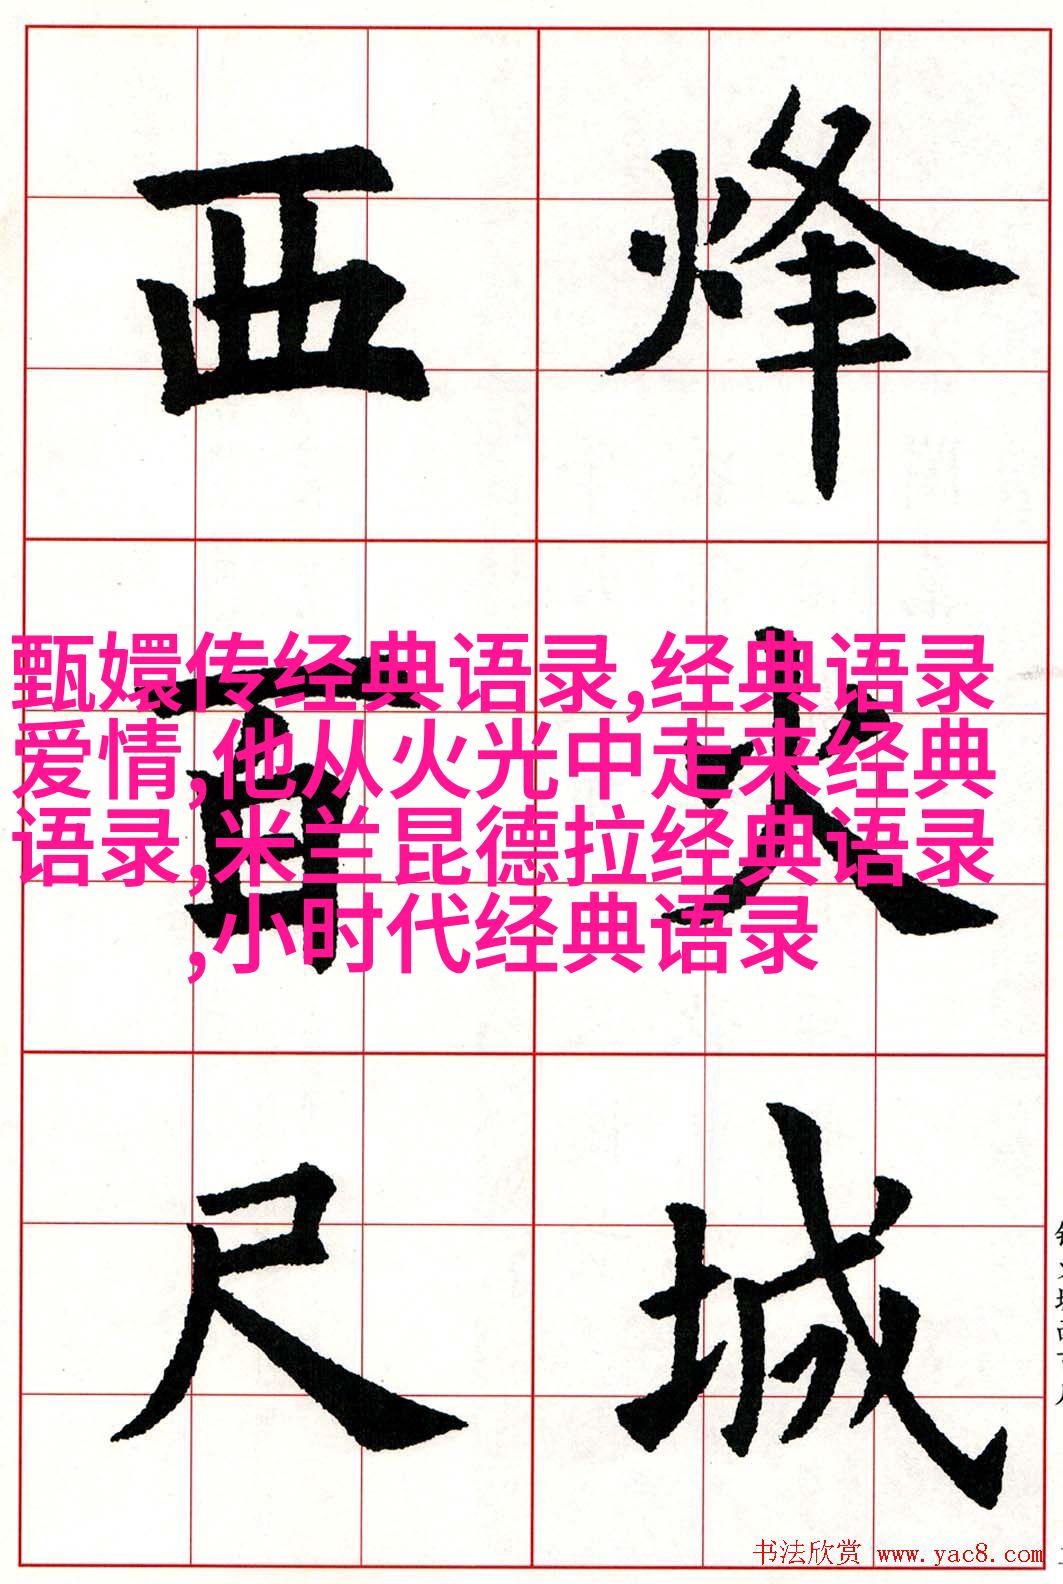 烽火城
西百尺
甄嬛传经典语录,经典语录
爱情,他从火光中走来经典
语录,米兰昆德拉经典语录
,小时代经典语录
书法欣赏 www.yac8.com